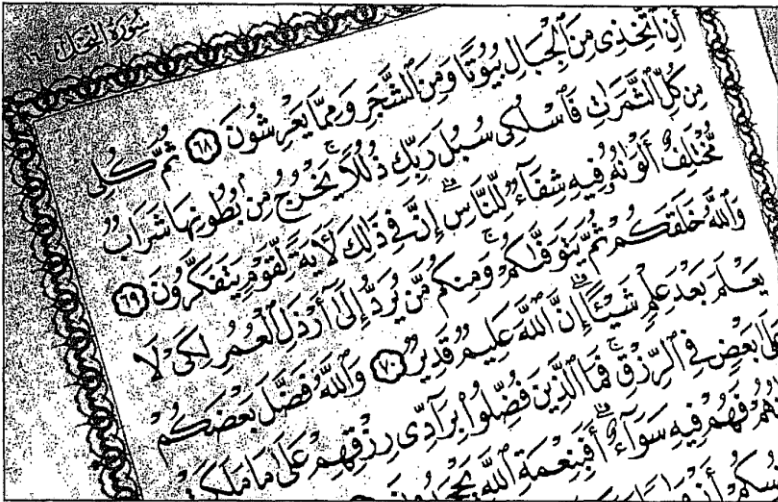 سُورَةُ النَّحْل
أَنِ ٱتَّخِذِى مِنَ ٱلْجِبَالِ بُيُوتًا وَمِنَ ٱلشَّجَرِ وَمِمَّا يَعْرِشُونَ ٦٨ ثُمَّ كُلِى
مِن كُلِّ ٱلثَّمَرَٰتِ فَٱسْلُكِى سُبُلَ رَبِّكِ ذُلُلًا ۚ يَخْرُجُ مِنۢ بُطُونِهَا شَرَابٌ
مُّخْتَلِفٌ أَلْوَٰنُهُۥ فِيهِ شِفَآءٌ لِّلنَّاسِ ۗ إِنَّ فِى ذَٰلِكَ لَـَٔايَةً لِّقَوْمٍ يَتَفَكَّرُونَ ٦٩
وَٱللَّهُ خَلَقَكُمْ ثُمَّ يَتَوَفَّىٰكُمْ ۚ وَمِنكُم مَّن يُرَدُّ إِلَىٰٓ أَرْذَلِ ٱلْعُمُرِ لِكَىْ لَا
يَعْلَمَ بَعْدَ عِلْمٍ شَيْـًٔا ۚ إِنَّ ٱللَّهَ عَلِيمٌ قَدِيرٌ ٧٠ وَٱللَّهُ فَضَّلَ بَعْضَكُمْ
بَعْضٍ فِى ٱلرِّزْقِ ۚ فَمَا ٱلَّذِينَ فُضِّلُوا۟ بِرَآدِّى رِزْقِهِمْ عَلَىٰ مَا مَلَكَتْ
فَهُمْ فِيهِ سَوَآءٌ ۚ أَفَبِنِعْمَةِ ٱللَّهِ